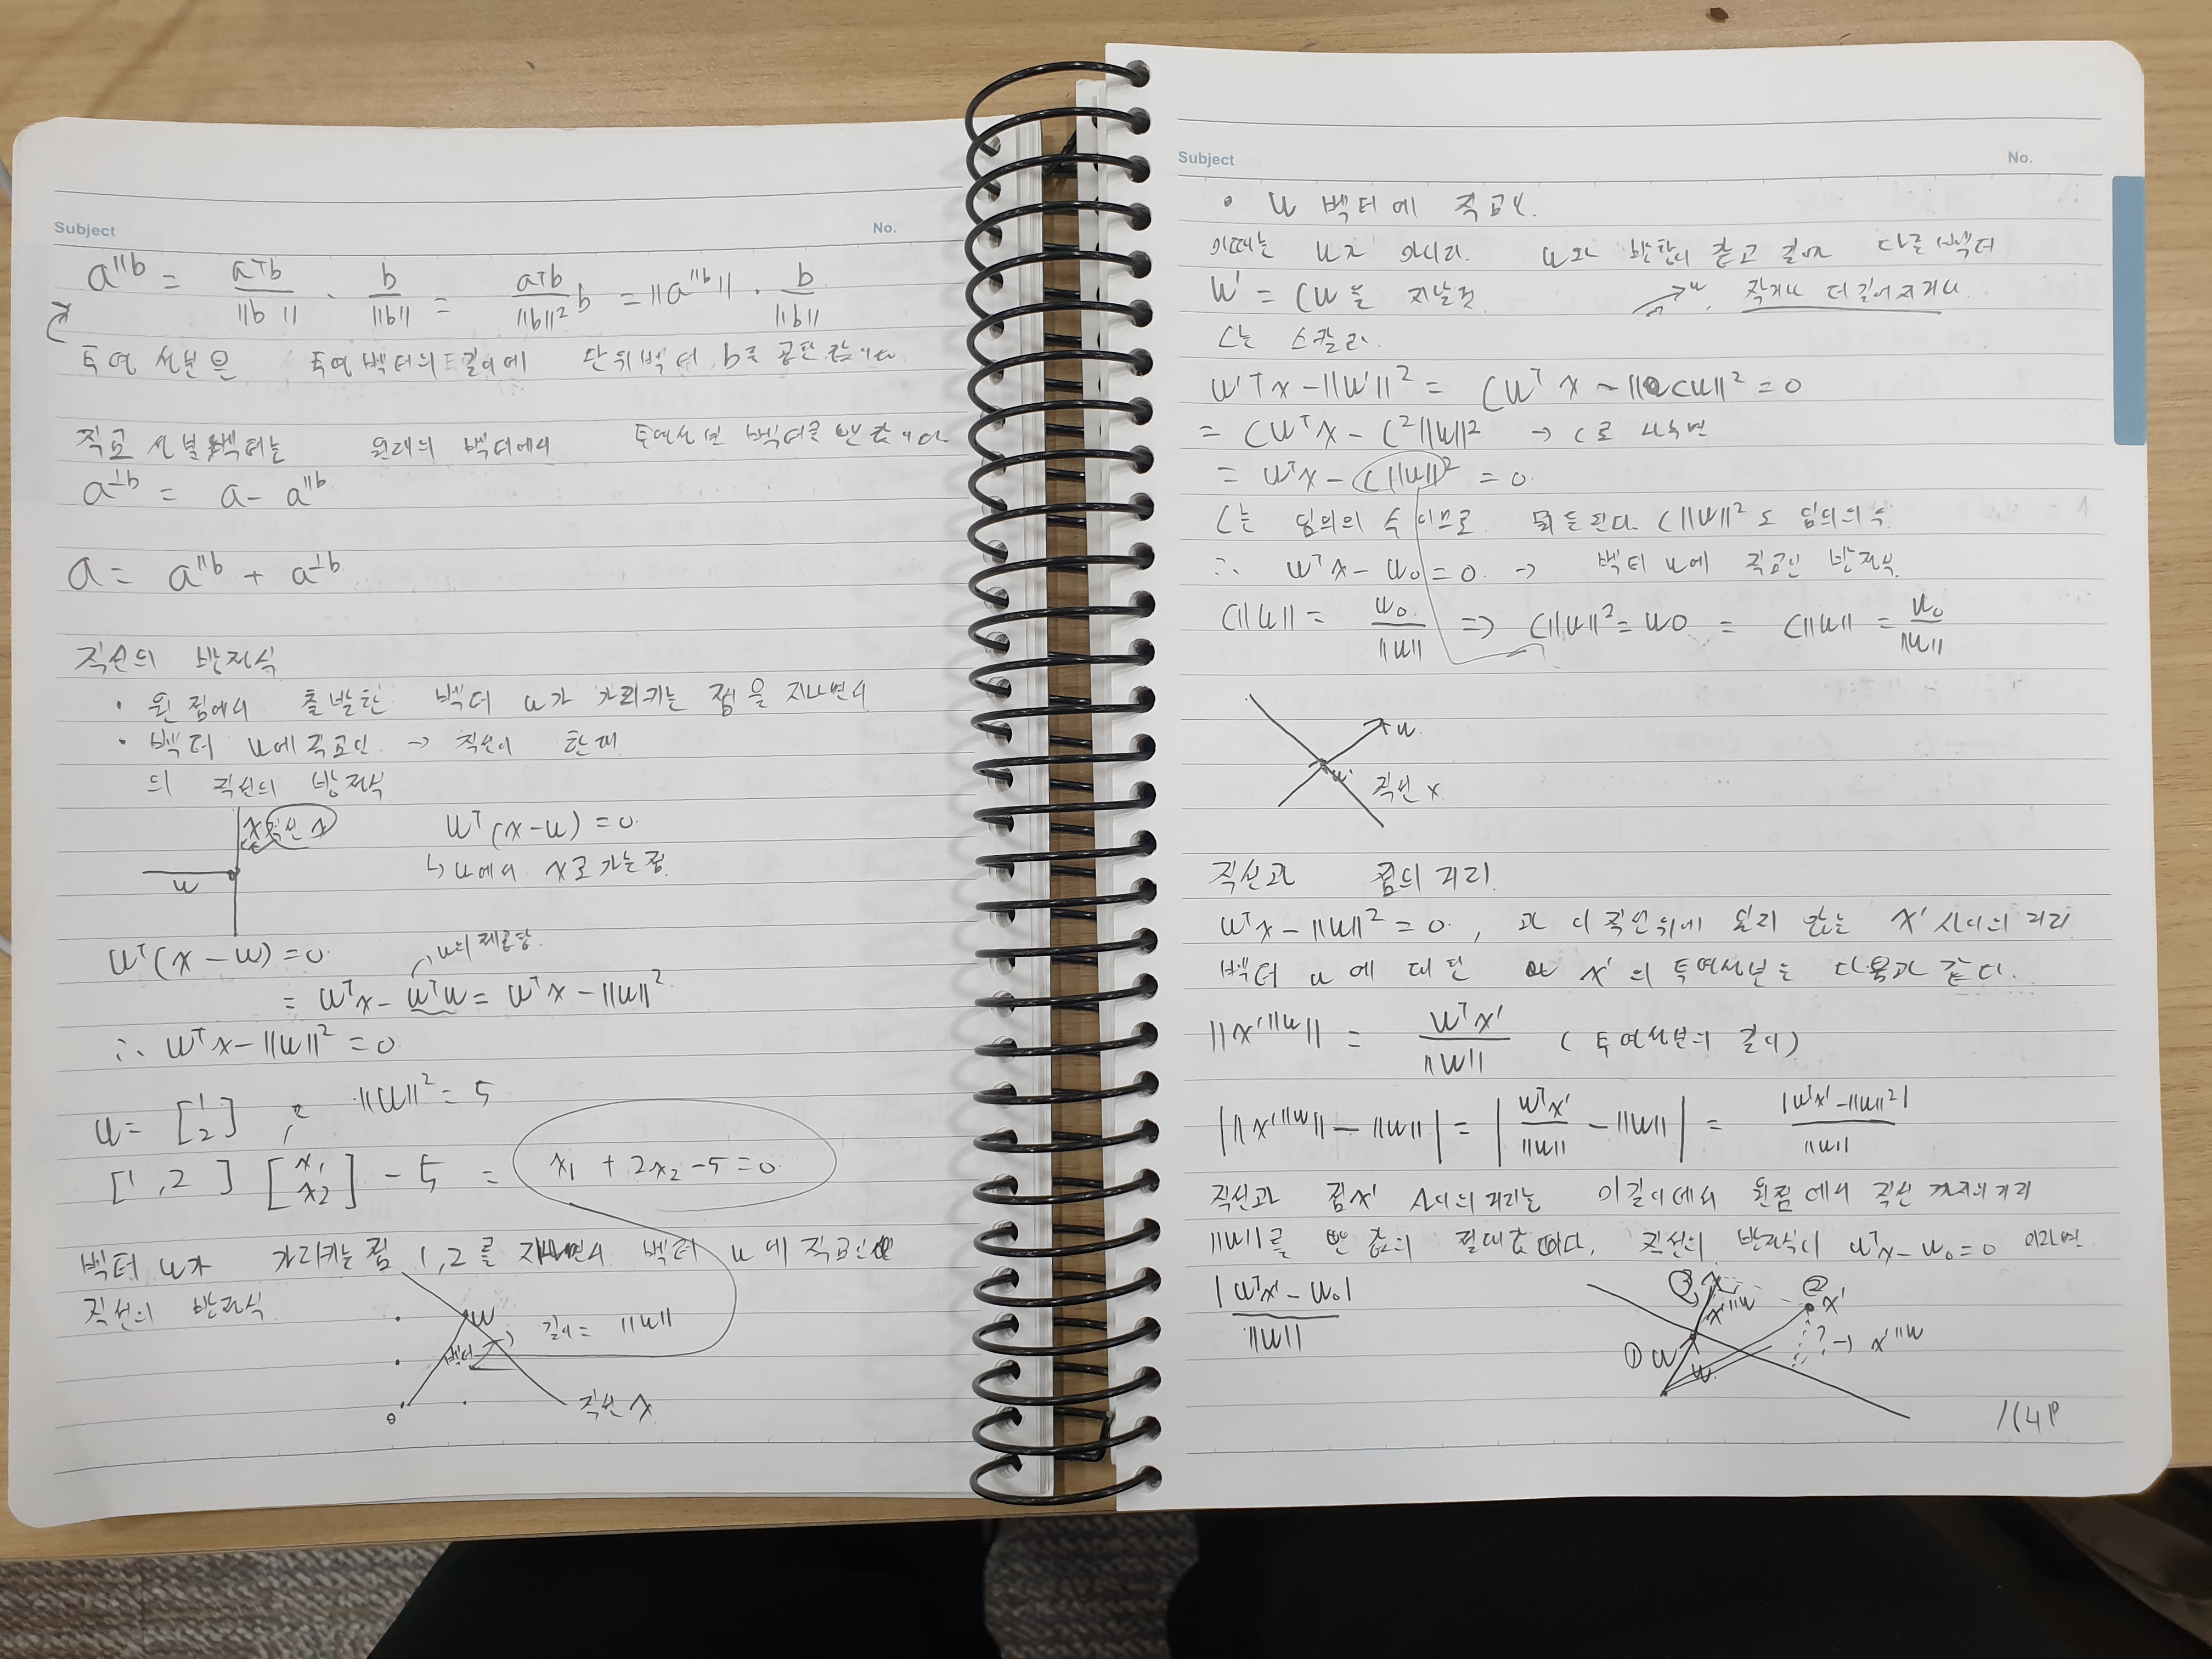 Subject No.
a^{∥b} = a^T b / ∥b∥ · b / ∥b∥ = a^T b / ∥b∥² b = ∥a^{∥b}∥ · b / ∥b∥
투영 성분은 투영벡터의 길이에 단위벡터 b를 곱한 값이다
직교 성분 벡터는 원래의 벡터에서 투영성분 벡터를 뺀 값이다
a^{⊥b} = a - a^{∥b}
a = a^{∥b} + a^{⊥b}
직선의 방정식
· 원점에서 출발한 벡터 w가 가리키는 점을 지나면서
· 벡터 w에 직교인 → 직선이 한개
의 직선의 방정식
직선 x
w
w^T(x-w) = 0
↳ w에서 x로 가는 점
w^T(x-w) = 0
w의 제곱합
= w^T x - w^T w = w^T x - ∥w∥²
∴ w^T x - ∥w∥² = 0
w = [1 2] , ∥w∥² = 5
[1, 2] [x₁ x₂] - 5 = x₁ + 2x₂ - 5 = 0
벡터 w가 가리키는 점 1, 2를 지나면서 벡터 w에 직교인
직선의 방정식
w
길이 = ∥w∥
벡터
0
직선 x
Subject No.
· w 벡터에 직교
이때는 w가 아니라 w와 방향이 같고 길이가 다른 벡터
w' = cw를 지날것 w, 작거나 더 길어지거나
c는 스칼라.
w'^T x - ∥w'∥² = cw^T x - ∥cw∥² = 0
= cw^T x - c²∥w∥² → c로 나누면
= w^T x - c∥w∥² = 0
c는 임의의 수 이므로 뭐든된다. c∥w∥²도 임의의 수
∴ w^T x - w₀ = 0 → 벡터 w에 직교인 방정식
c∥w∥ = w₀ / ∥w∥ ⇒ c∥w∥² = w0 = c∥w∥ = w₀ / ∥w∥
w
w'
직선 x
직선과 점의 거리
w^T x - ∥w∥² = 0, 과 이 직선위에 있지 않는 x' 사이의 거리
벡터 w에 대한 x'의 투영성분은 다음과 같다.
∥x'^{∥w}∥ = w^T x' / ∥w∥ (투영성분의 길이)
|∥x'^{∥w}∥ - ∥w∥| = |w^T x' / ∥w∥ - ∥w∥| = |w^T x' - ∥w∥²| / ∥w∥
직선과 점 x' 사이의 거리는 이 길이에서 원점에서 직선 까지의 거리
∥w∥를 뺀 값의 절대값이다, 직선의 방정식이 w^T x - w₀ = 0 이라면
|w^T x' - w₀| / ∥w∥
③ x'^{∥w}
② x'
? → x'^{∥w}
① w
w